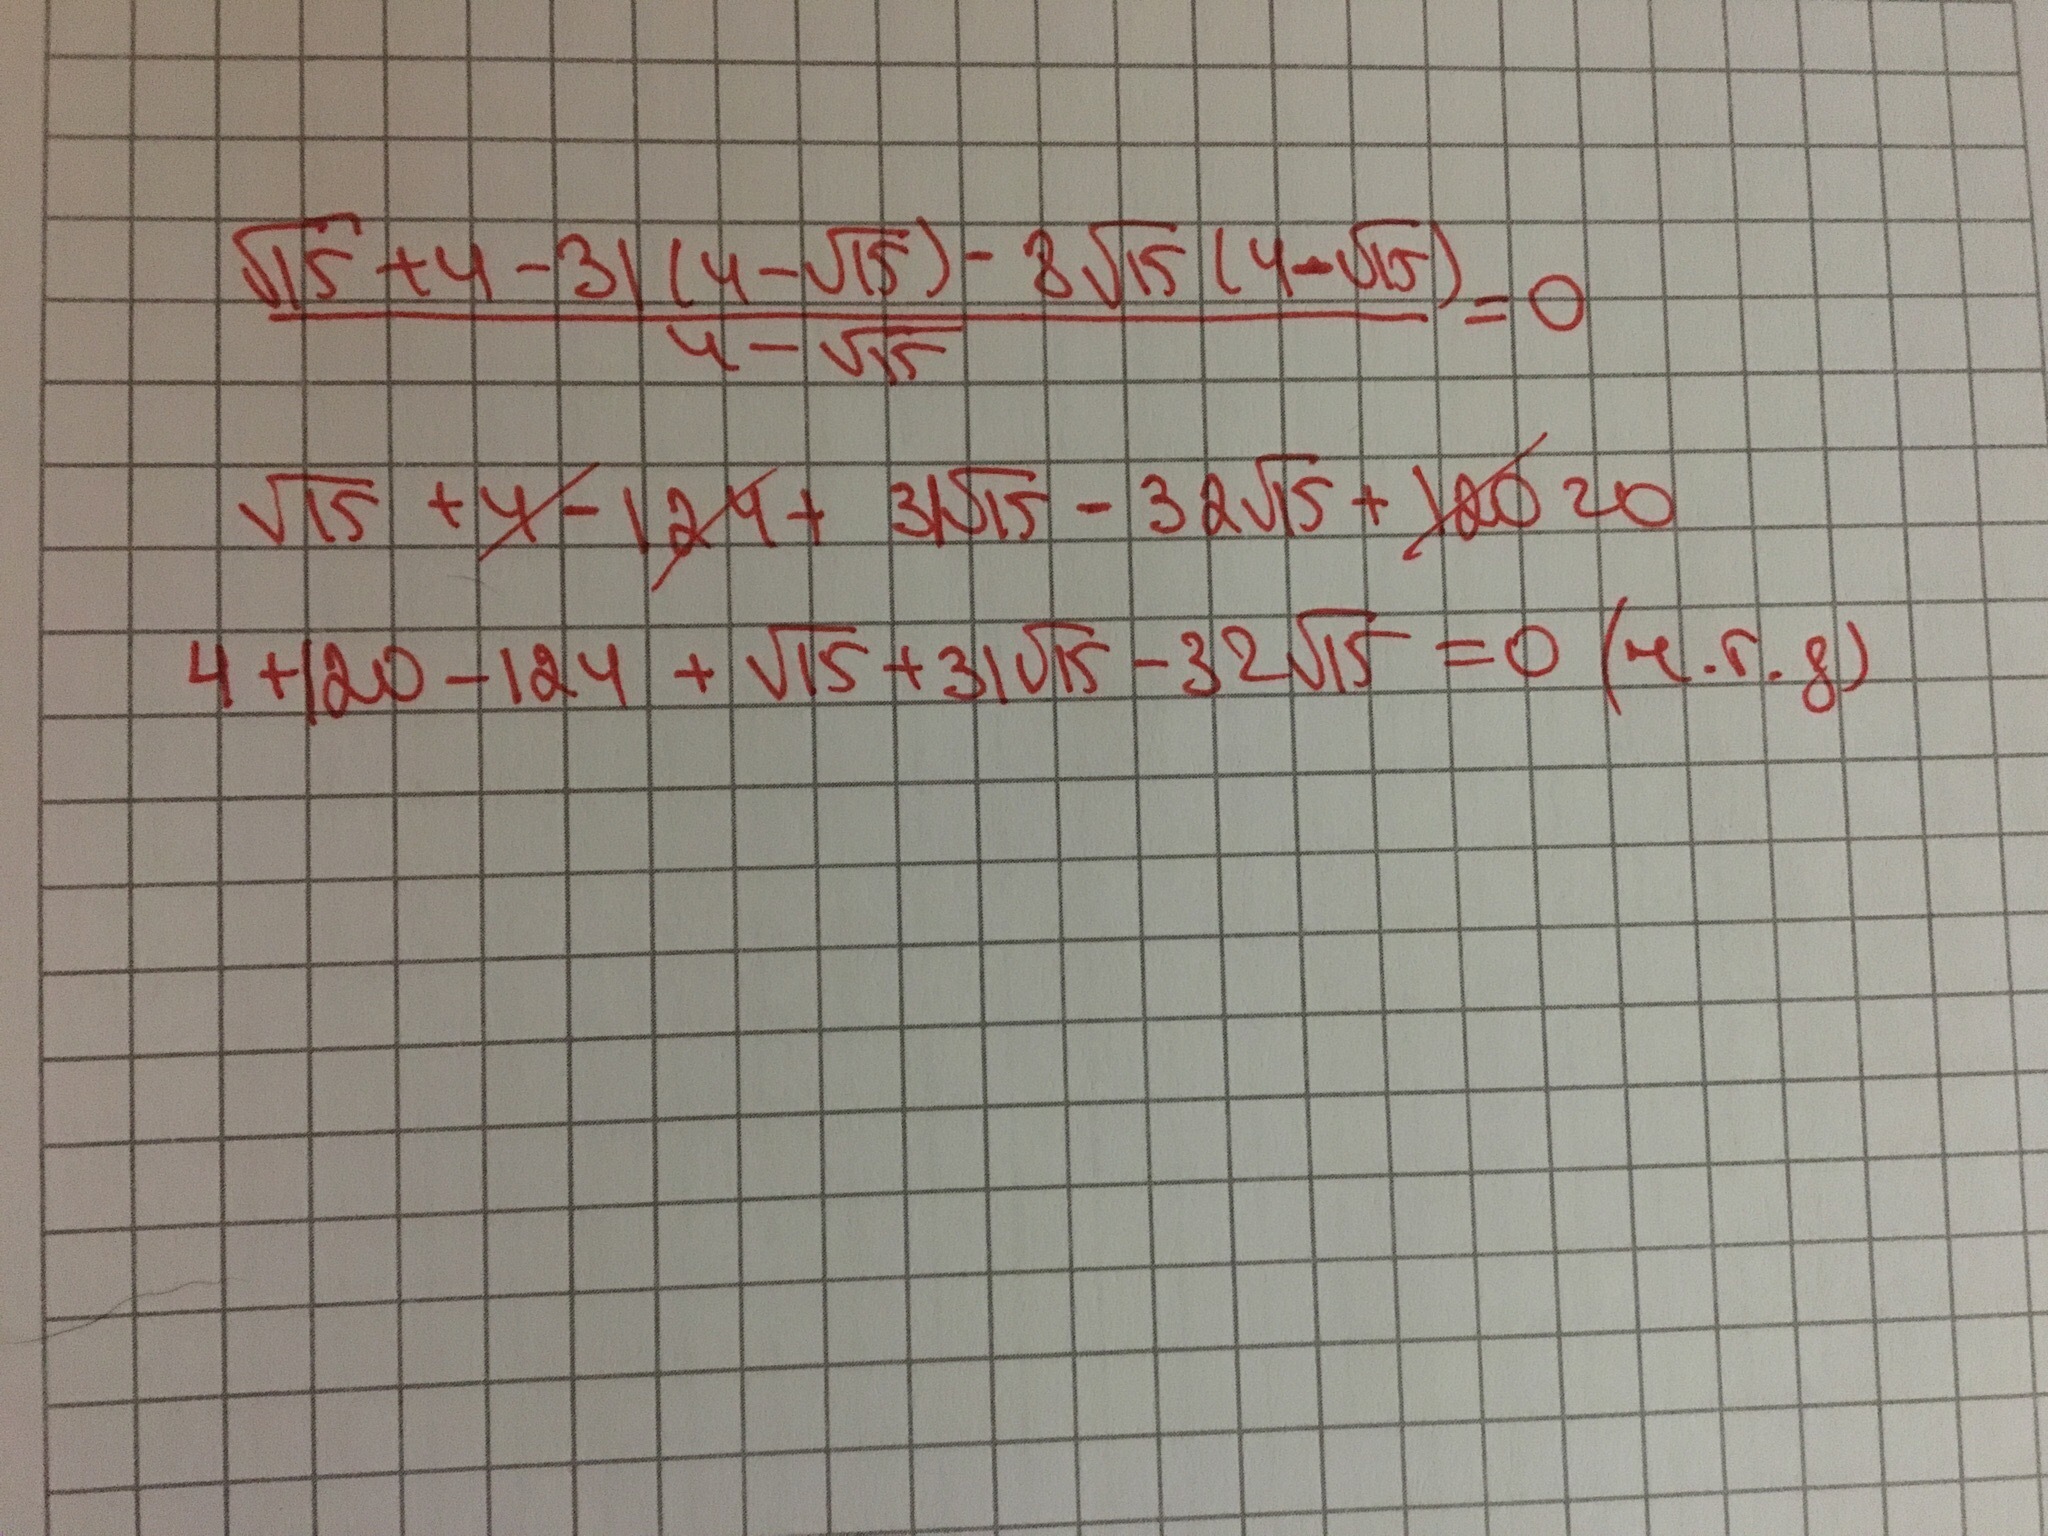 √15 + 4 - 31(4 - √15) - 8√15(4 - √15) = 0
4 - √15
√15 + 4 - 124 + 31√15 - 32√15 + 120 20
4 + 120 - 124 + √15 + 31√15 - 32√15 = 0 (ч.т.д)